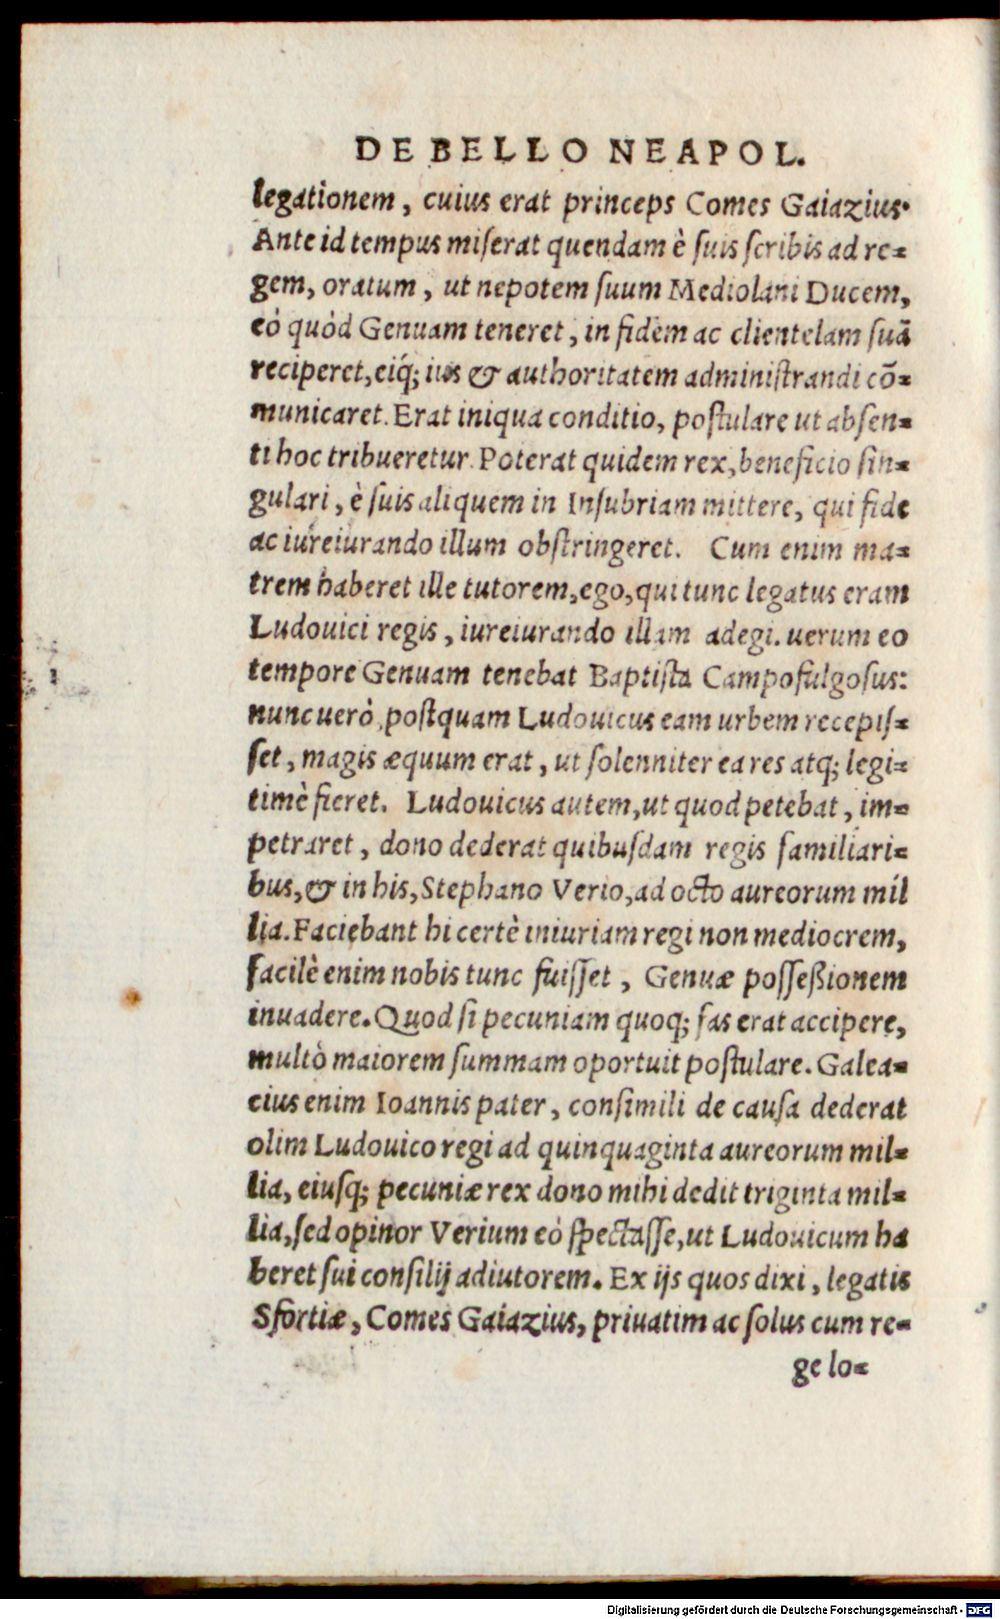 DE BELLO NEAPOL.
legationem, cuius erat princeps Comes Gaiazius.
Ante id tempus miserat quendam è suis scribis ad re-
gem, oratum, ut nepotem suum Mediolani Ducem,
eò quòd Genuam teneret, in fidem ac clientelam suā
reciperet, eiq́; ius & authoritatem administrandi cō-
municaret. Erat iniqua conditio, postulare ut absen-
ti hoc tribueretur. Poterat quidem rex, beneficio sin-
gulari, è suis aliquem in Insubriam mittere, qui fide
ac iureiurando illum obstringeret. Cum enim ma-
trem haberet ille tutorem, ego, qui tunc legatus eram
Ludouici regis, iureiurando illam adegi. uerum eo
tempore Genuam tenebat Baptista Campofulgosus:
nunc uerò, postquam Ludouicus eam urbem recepis-
set, magis æquum erat, ut solenniter ea res atq; legi-
timè fieret. Ludouicus autem, ut quod petebat, im-
petraret, dono dederat quibusdam regis familiari-
bus, & in his, Stephano Verio, ad octo aureorum mil
lia. Faciebant hi certè iniuriam regi non mediocrem,
facilè enim nobis tunc fuisset, Genuæ posseßionem
inuadere. Quod si pecuniam quoq; fas erat accipere,
multò maiorem summam oportuit postulare. Galea-
cius enim Ioannis pater, consimili de causa dederat
olim Ludouico regi ad quinquaginta aureorum mil-
lia, eiusq; pecuniæ rex dono mihi dedit triginta mil-
lia, sed opinor Verium eò spectasse, ut Ludouicum ha
beret sui consilij adiutorem. Ex ijs quos dixi, legatis
Sfortiæ, Comes Gaiazius, priuatim ac solus cum re-
ge lo-
Digitalisierung gefördert durch die Deutsche Forschungsgemeinschaft - DFG